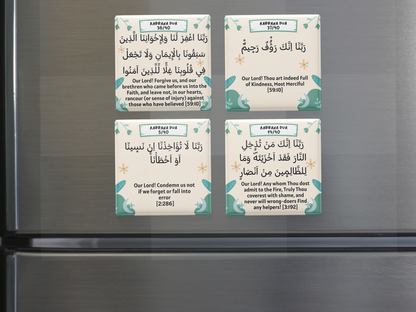 RABBANA DUA
36/40
رَبَّنَا اغْفِرْ لَنَا وَلِإِخْوَانِنَا الَّذِينَ
سَبَقُونَا بِالْإِيمَانِ وَلَا تَجْعَلْ
فِي قُلُوبِنَا غِلًّا لِّلَّذِينَ آمَنُوا
Our Lord! Forgive us, and our
brethren who came before us into the
Faith, and leave not, in our hearts,
rancour (or sense of injury) against
those who have believed [59:10]
RABBANA DUA
37/40
رَبَّنَا إِنَّكَ رَءُوفٌ رَحِيمٌ
Our Lord! Thou art indeed Full
of Kindness, Most Merciful
[59:10]
RABBANA DUA
5/40
رَبَّنَا لَا تُؤَاخِذْنَا إِن نَّسِينَا
أَوْ أَخْطَأْنَا
Our Lord! Condemn us not
if we forget or fall into
error
[2:286]
RABBANA DUA
14/40
رَبَّنَا إِنَّكَ مَن تُدْخِلِ
النَّارَ فَقَدْ أَخْزَيْتَهُ وَمَا
لِلظَّالِمِينَ مِنْ أَنصَارٍ
Our Lord! Any whom Thou dost
admit to the Fire, Truly Thou
coverest with shame, and
never will wrong-doers Find
any helpers! [3:192]